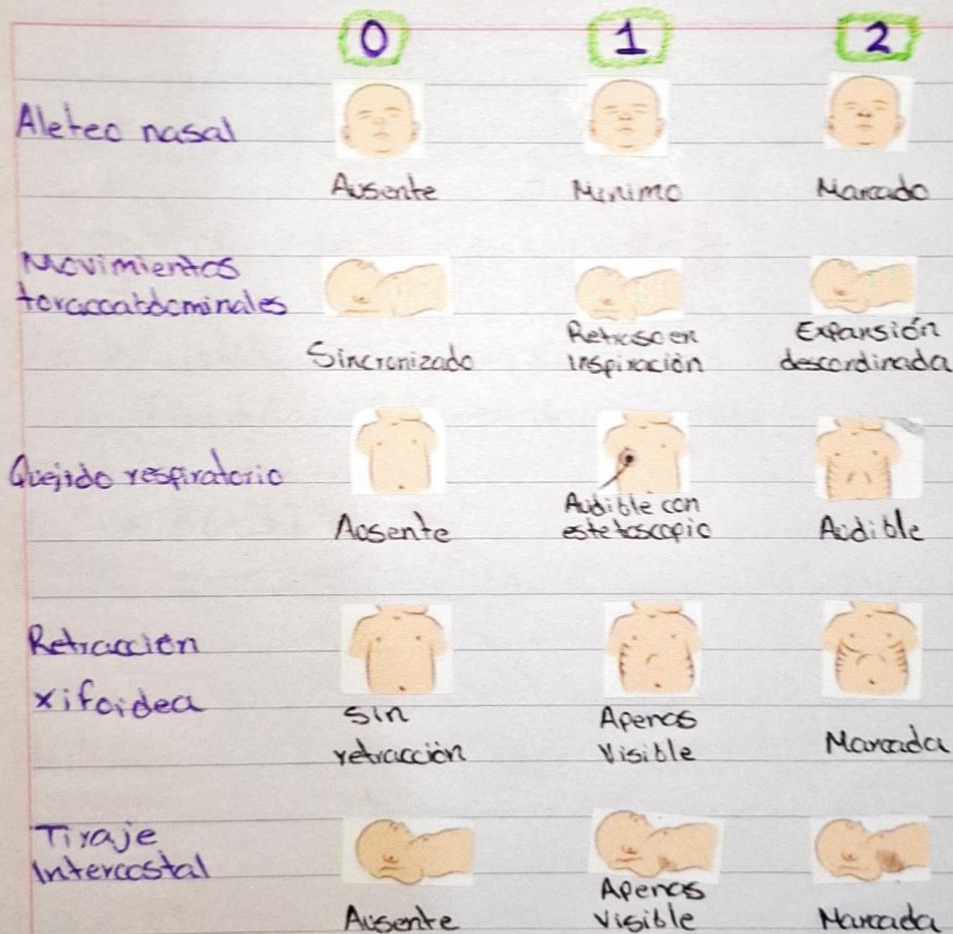 0 1 2
Aleteo nasal
Ausente Minimo Marcado
Movimientos
toracoabdominales
Sincronizado
Retraso en
Inspiración
Expansión
descordinada
Quejido respiratorio
Ausente
Audible con
estetoscopio
Audible
Retracción
xifoidea
Sin
retracción
Apenas
Visible
Marcada
Tiraje
Intercostal
Ausente
Apenas
Visible
Marcada